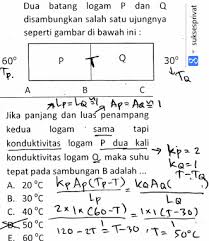 Dua batang logam P dan Q
disambungkan salah satu ujungnya
seperti gambar di bawah ini :
60° P T Q 30°
Tp. TQ
A B C
Lp = LQ = 1 Ap = AQ = 1
Jika panjang dan luas penampang
kedua logam sama tapi
konduktivitas logam P dua kali
konduktivitas logam Q, maka suhu
tepat pada sambungan B adalah ...
kp = 2
kQ = 1
A. 20 °C
B. 30 °C
C. 40 °C
D. 50 °C
E. 60 °C
kp Ap (Tp-T) = kQ AQ ( T-TQ
Lp LQ
2x1x(60-T) = 1x1(T-30)
120-2T = T-30 T = 50°C
suksesprivat